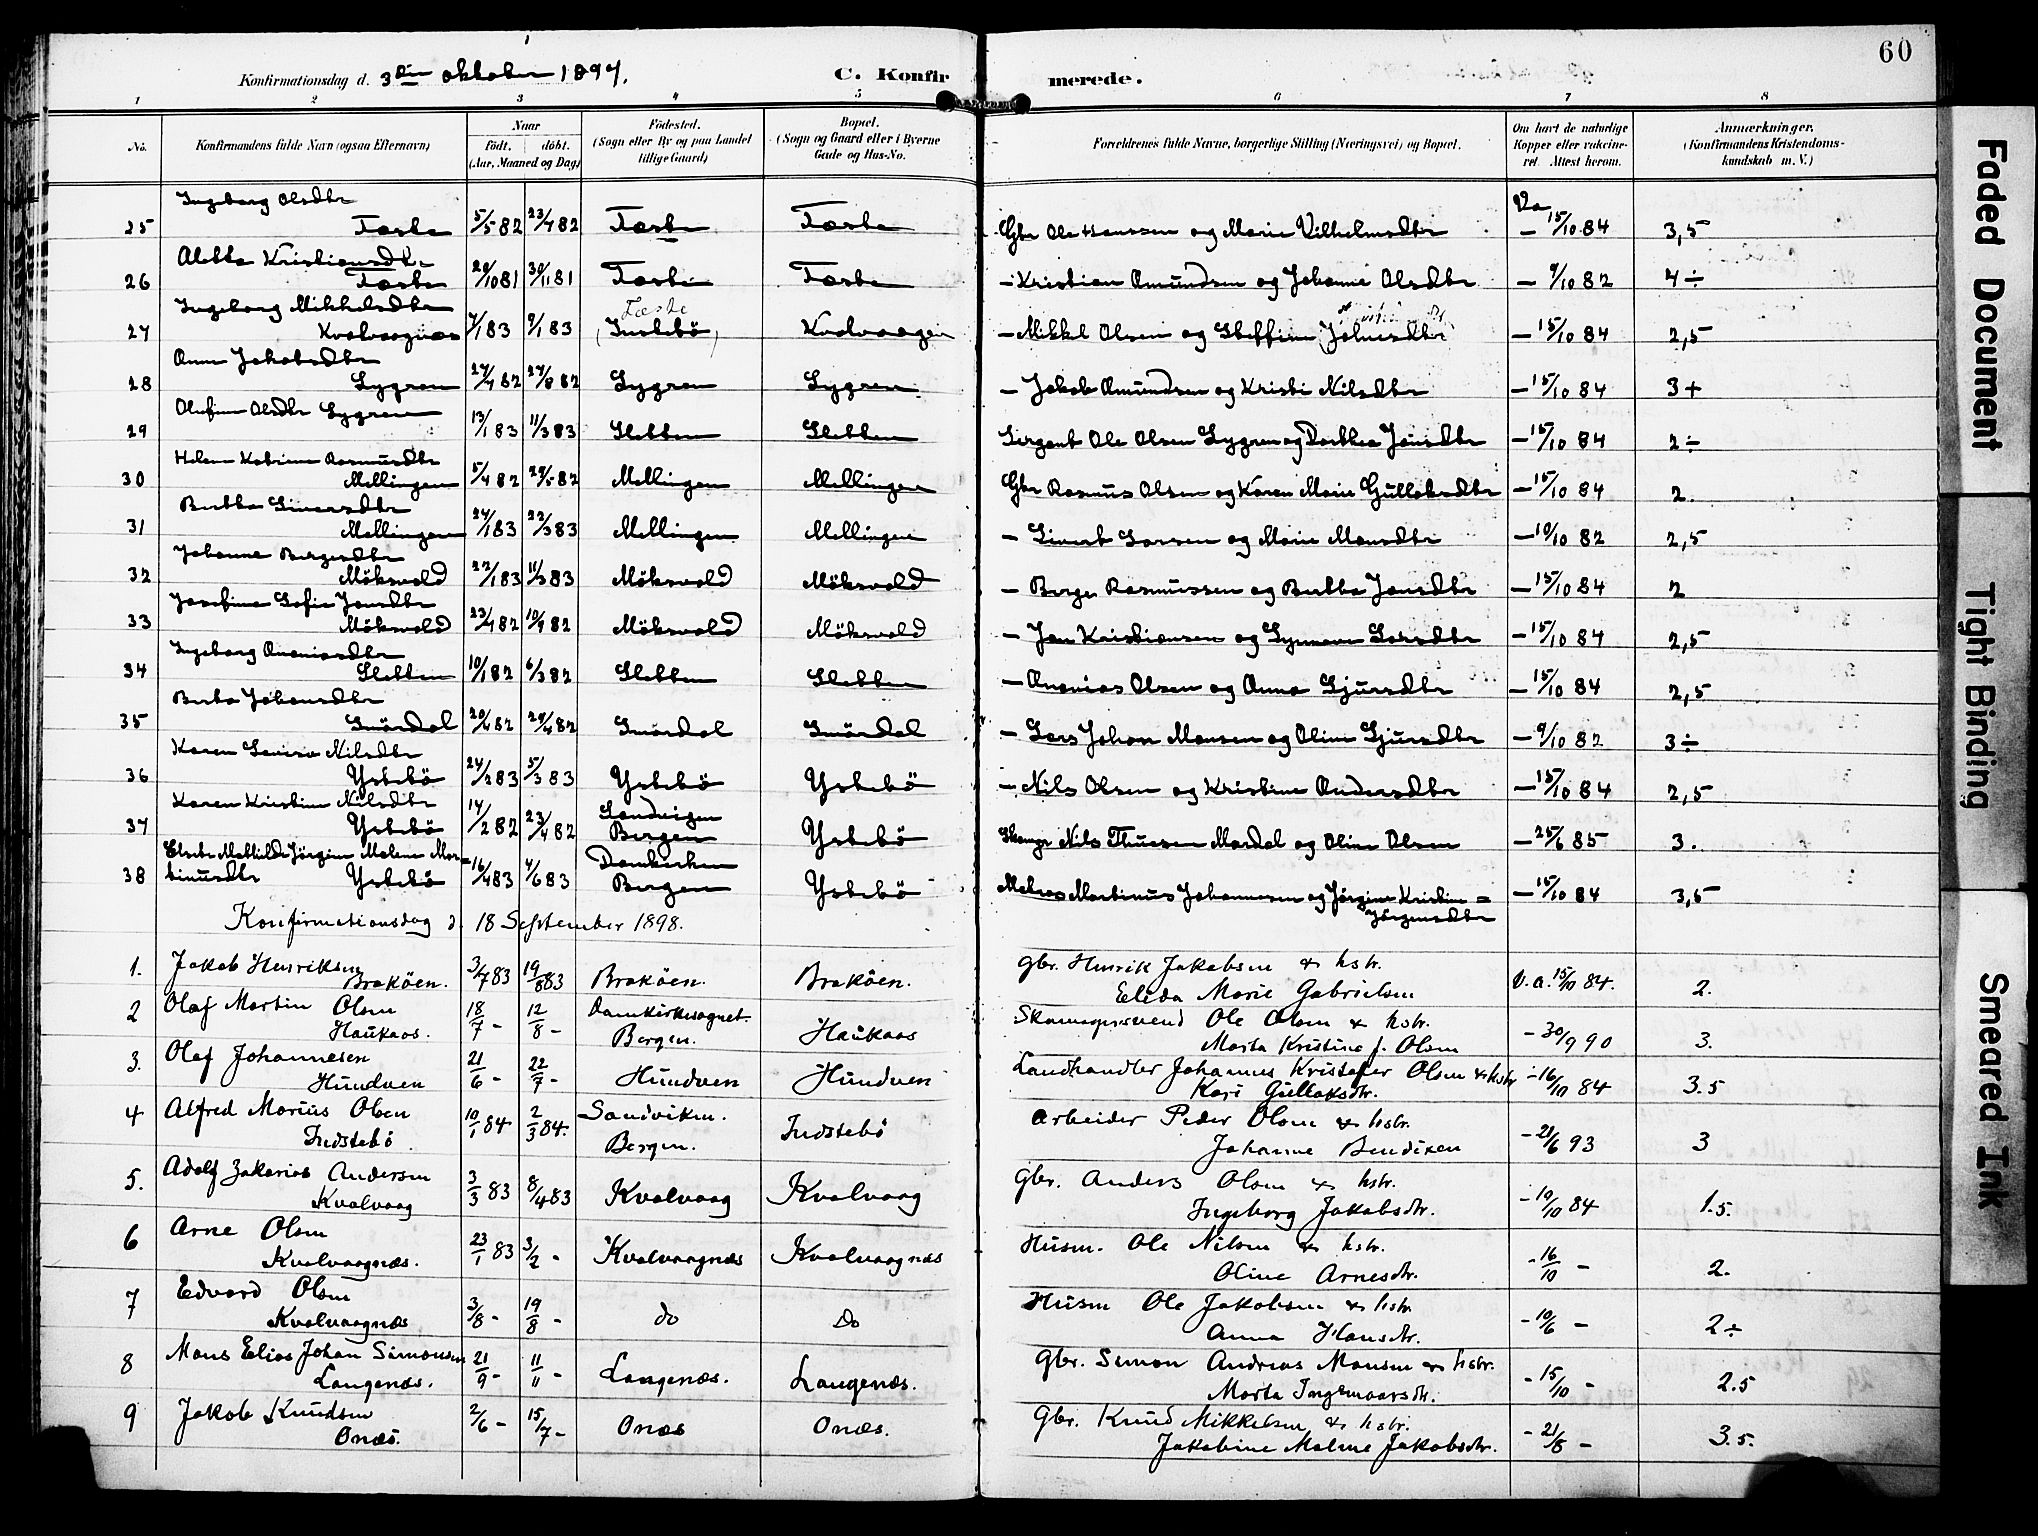 Konfirmationsdag d. 3die oktober 1897. C. Konfirmerede. 60
1 2 3 4 5 6 7 8
No. Konfirmandens fulde Navn (ogsaa Efternavn) Naar født. døbt. (Aar, Maaned og Dag) Fødested. (Sogn eller By og paa Landet tillige Gaard) Bopæl. (Sogn og Gaard eller i Byerne Gade og Hus-No. Forældrenes fulde Navne, borgerlige Stilling (Næringsvei) og Bopæl. Om havt de naturlige Kopper eller vaccineret. Attest herom. Anmærkninger. (Konfirmandens Kristendomskundskab m. V.)
Ingeborg Olsdtr
25 Tæste 5/5 82 23/7 82 Tæste Tæste Gbr Ole Hanssen og Marie Vilhelmsdtr Va – 15/10 84 3,5
Aletta Kristiansdtr
26 Tæste 29/10 81 30/11 81 Tæste Tæste – Kristian Amundsen og Johanne Olsdtr – 9/10 82 4÷
Ingeborg Mikkelsdtr Tæste
27 Kvalvaagnæs 7/1 83 9/1 83 (Instebö) Kvalvaagen – Mikkel Olsen og Steffine (Johnesdtr – 15/10 84 2,5
Anna Jakobsdtr
28 Lygren 27/7 82 27/8 82 Lygren Lygren – Jakob Amundsen og Kristi Nilsdtr – 15/10 84 3+
Olufine Olsdtr Lygren
29 13/1 83 11/3 83 Sletten Sletten Sergent Ole Olsen Lygren og Dorthea Jonsdtr – 15/10 84 2÷
Helene Katrine Rasmusdtr
30 Mellingen 5/4 82 29/5 82 Mellingen Mellingen Gbr Rasmus Olsen og Karen Marie Gullaksdtr – 15/10 84 2.
Bertha Siversdtr
31 Mellingen 24/1 83 22/3 83 Mellingen Mellingen – Sivert Larsen og Marie Monsdtr – 10/10 82 2,5
Johanne Bergesdtr
32 Möksvold 22/1 83 11/3 83 Möksvold Möksvold – Berge Rasmussen og Bertha Jonsdtr – 15/10 84 2
Josefine Sofie Jonsdtr
33 Möksvold 23/7 82 10/9 82 Möksvold Möksvold – Jon Kristiansen og Synneve Larsdtr – 15/10 84 2,5
Ingeborg Ananiasdtr
34 Sletten 10/1 82 6/3 82 Sletten Sletten – Ananias Olsen og Anna Sjursdtr – 15/10 84 2,5
Berta Johansdtr
35 Smördal 20/4 82 29/4 82 Smördal Smördal – Lars Johan Monsen og Oline Sjursdtr – 9/10 82 3÷
Karen Lovisa Nilsdtr
36 Ystebö 24/2 83 5/3 83 Ystebö Ystebö – Nils Olsen og Kristine Andersdtr – 15/10 84 2,5
Karen Kristine Nilsdtr Sandvigen
37 Ystebö 14/2 82 23/4 82 Bergen Ystebö Skomgr Nils Thuesen Mardal og Oline Olsen – 25/6 85 3.
Elserbe Mathilde Jörgine Malene Mar= Domkirken
38 tinusdtr Ystebö 16/4 83 4/6 83 Bergen Ystebö Matros Martinus Johannesen og Jörgine Kristine= – 15/10 84 3,5
Jörgensdtr
Konfirmationsdag d. 18 September 1898.
1. Jakob Henriksen 3/7 83 19/8 83 Braköen. Braköen. Gbr. Henrik Jakobsen & hstr. V. a. 15/10 84. 2.
Braköen. Elida Marie Gabrielsen
2 Olaf Martin Olsen 18/7 – 12/8 – Domkirkesognet Skomagersvend Ole Olsen & hstr. – 30/9 90 3.
Haukaas. Bergen. Haukaas Marta Kristine f. Olsen
3. Olaf Johannesen 21/6 – 22/7 – Landhandler Johannes Kristofer Olsen & hstr – 16/10 84 3.5
Hundven Hundven Hundven Kari Gullaksdtr.
4 Alfred Marius Olsen 10/1 84 2/3 84. Sandviken. Arbeider Peder Olsen & hstr. – 21/6 93 3
Indstebö Bergen. Indstebö Johanne Bendixen
5. Adolf Zakarias Andersen 3/3 83 8/4 83 Gbr. Anders Olsen & hstr. – 10/10 84 1.5.
Kvalvaag Kvalvaag Kvalvaag Ingeborg Jakobsdtr.
6 Arne Olsen 23/1 83 3/2 – Husm. Ole Nilsen & hstr. – 16/10 – 2.
Kvalvaagnæs. Kvalvaagnæs Kvalvaagnæs Oline Arnesdtr.
7 Edvard Olsen 3/8 – 19/8 – do Do Husm Ole Jakobsen & hstr. – 10/6 – 2÷
Kvalvaagnæs Anna Hansdtr.
8 Mons Elias Johan Simonsen 21/9 – 11/11 – Gbr. Simon Andreas Monsen & hstr. – 15/10 – 2.5
Langenæs. Langenæs. Langenæs. Marta Ingemaarsdtr.
9 Jakob Knudsen 2/6 – 15/7 – Onæs Onæs. Gbr. Knud Mikkelsen & hstr. – 21/8 – 3.5.
Onæs. Jakobine Malene Jakobsdtr.
Faded Document
Tight Binding
Smeared Ink